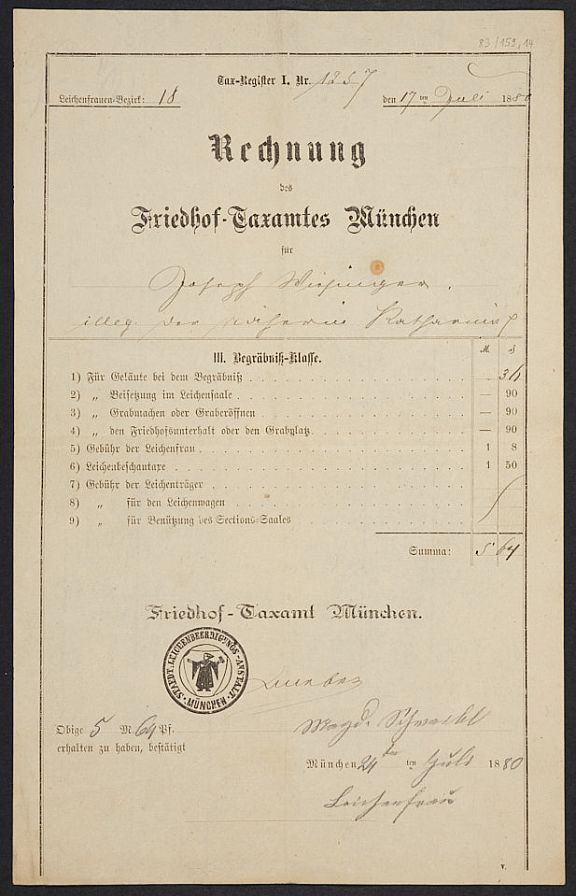 83/159,14
Tax-Register I. Nr. 1257
Leichenfrauen-Bezirk: 18
den 17 ten Juli 1880
Rechnung
des
Friedhof-Taxamtes München
für
Joseph Wiesinger.
illeg. der Näherin Katharina
III. Begräbniß-Klasse. M. ₰
1) Für Geläute bei dem Begräbniß 36
2) „ Beisetzung im Leichensaale — 90
3) „ Grabmachen oder Graberöffnen — 90
4) „ den Friedhofsunterhalt oder den Grabplatz — 90
5) Gebühr der Leichenfrau 1 8
6) Leichenbeschautaxe 1 50
7) Gebühr der Leichenträger
8) „ für den Leichenwagen
9) „ für Benützung des Sections-Saales
Summa: 5 64
Friedhof-Taxamt München.
STÄDT. LEICHENBEERDIGUNGS-ANSTALT MÜNCHEN
Obige 5 M. 64 Pf.
erhalten zu haben, bestätigt
Magd. Schwaibl
München 24 ten Juli 1880
Leichenfrau
V.